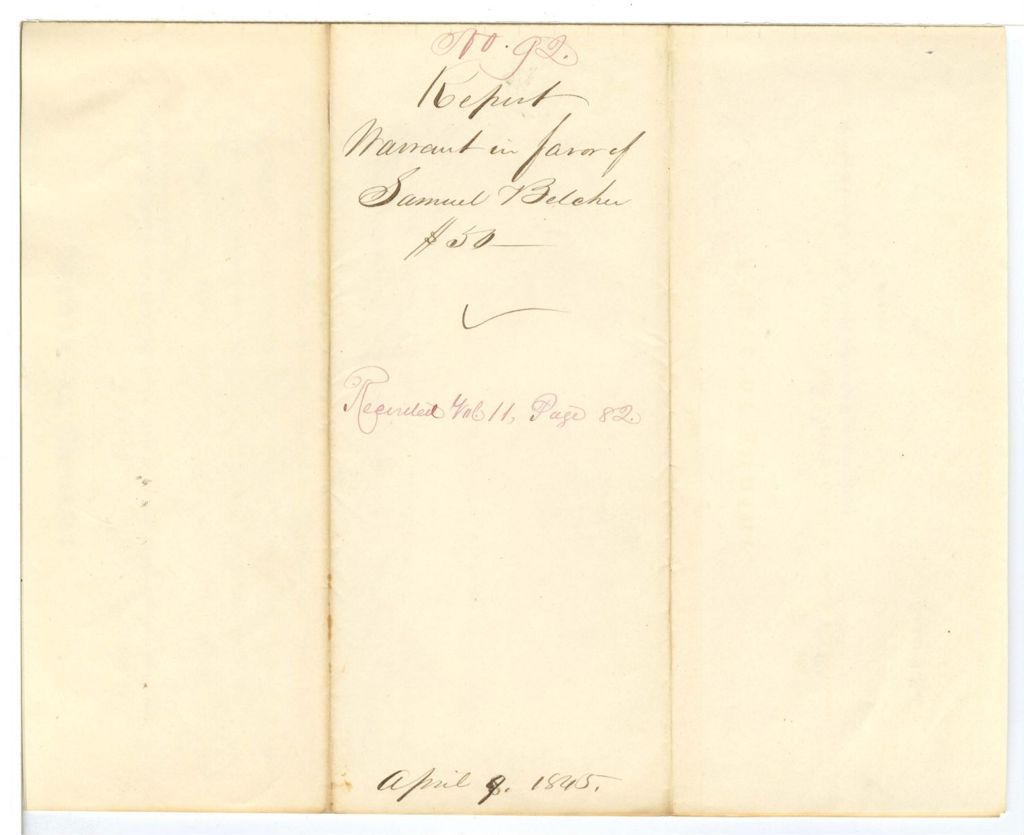 No. 92.
Report
Warrant in favor of
Samuel Belcher
$50—
Recorded Vol. 11, Page 82.
April 9. 1845.